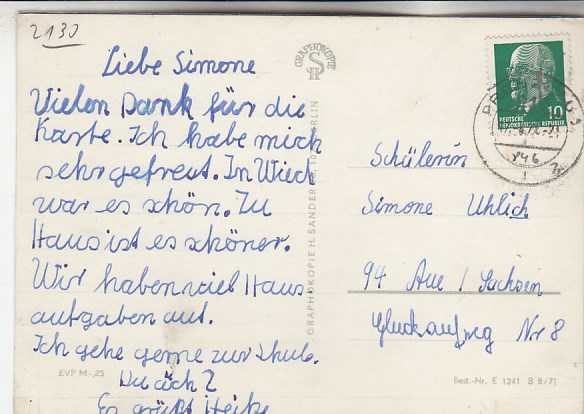 2130
Liebe Simone
Vielen Dank für die
Karte. Ich habe mich
sehr gefreut. In Wiek
war es schön. Zu
Haus ist es schöner.
Wir haben viel Haus
aufgaben auf.
Ich gehe gerne zur Shule.
Du auch?
Es grüßt Heike
EVP M -,25
GRAPHOKOPIE
GRAPHOKOPIE H. SANDER KG, BERLIN
DEUTSCHE
DEMOKRATISCHE REPUBLIK
10
Schülerin
Simone Uhlich
94 Aue / Sachsen
Glückaufweg Nr 8
Best.-Nr. E 1241 B 8/71